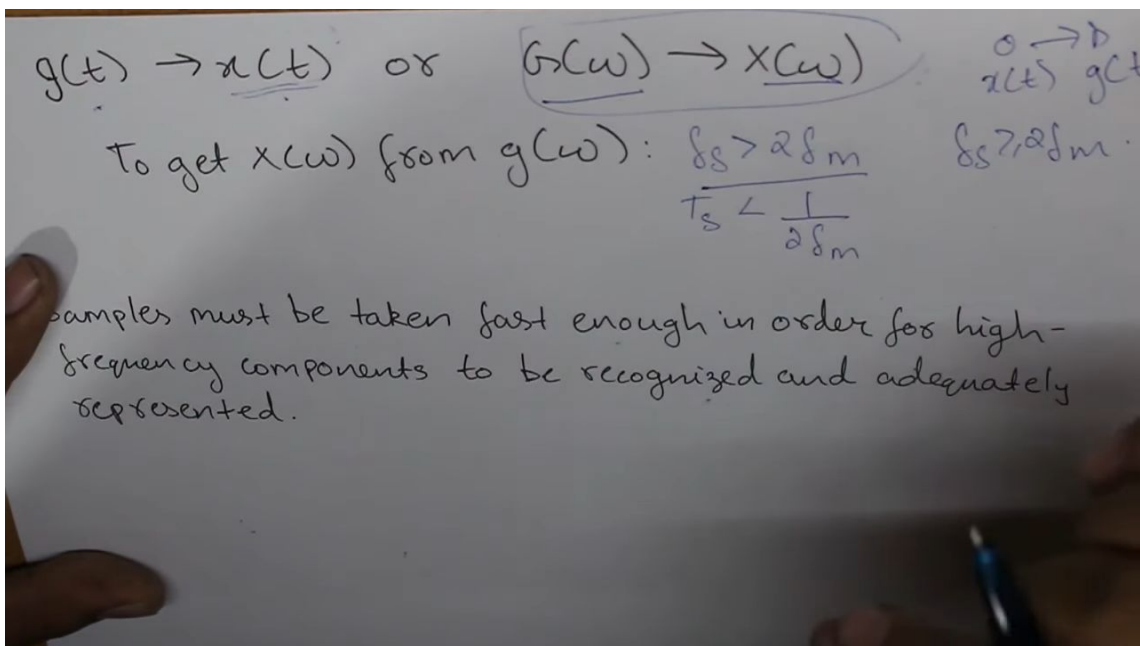 g(t) → x(t) or G(ω) → X(ω)
O → D
x(t) g(t
To get X(ω) from g(ω): fs > 2fm
fs ≥ 2fm.
Ts < 1/2fm
Samples must be taken fast enough in order for high-
frequency components to be recognized and adequately
represented.